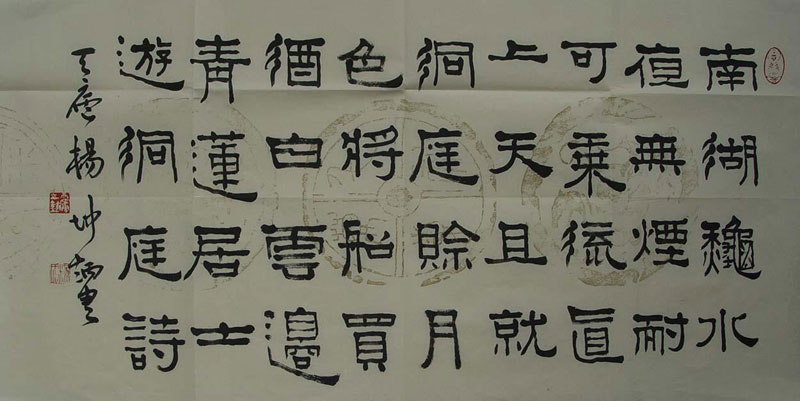 南湖龝水
夜無煙耐
可乘流直
上天且就
洞庭賒月
色將船買
酒白雲邊
青蓮居士
遊洞庭詩
楊坤炳書